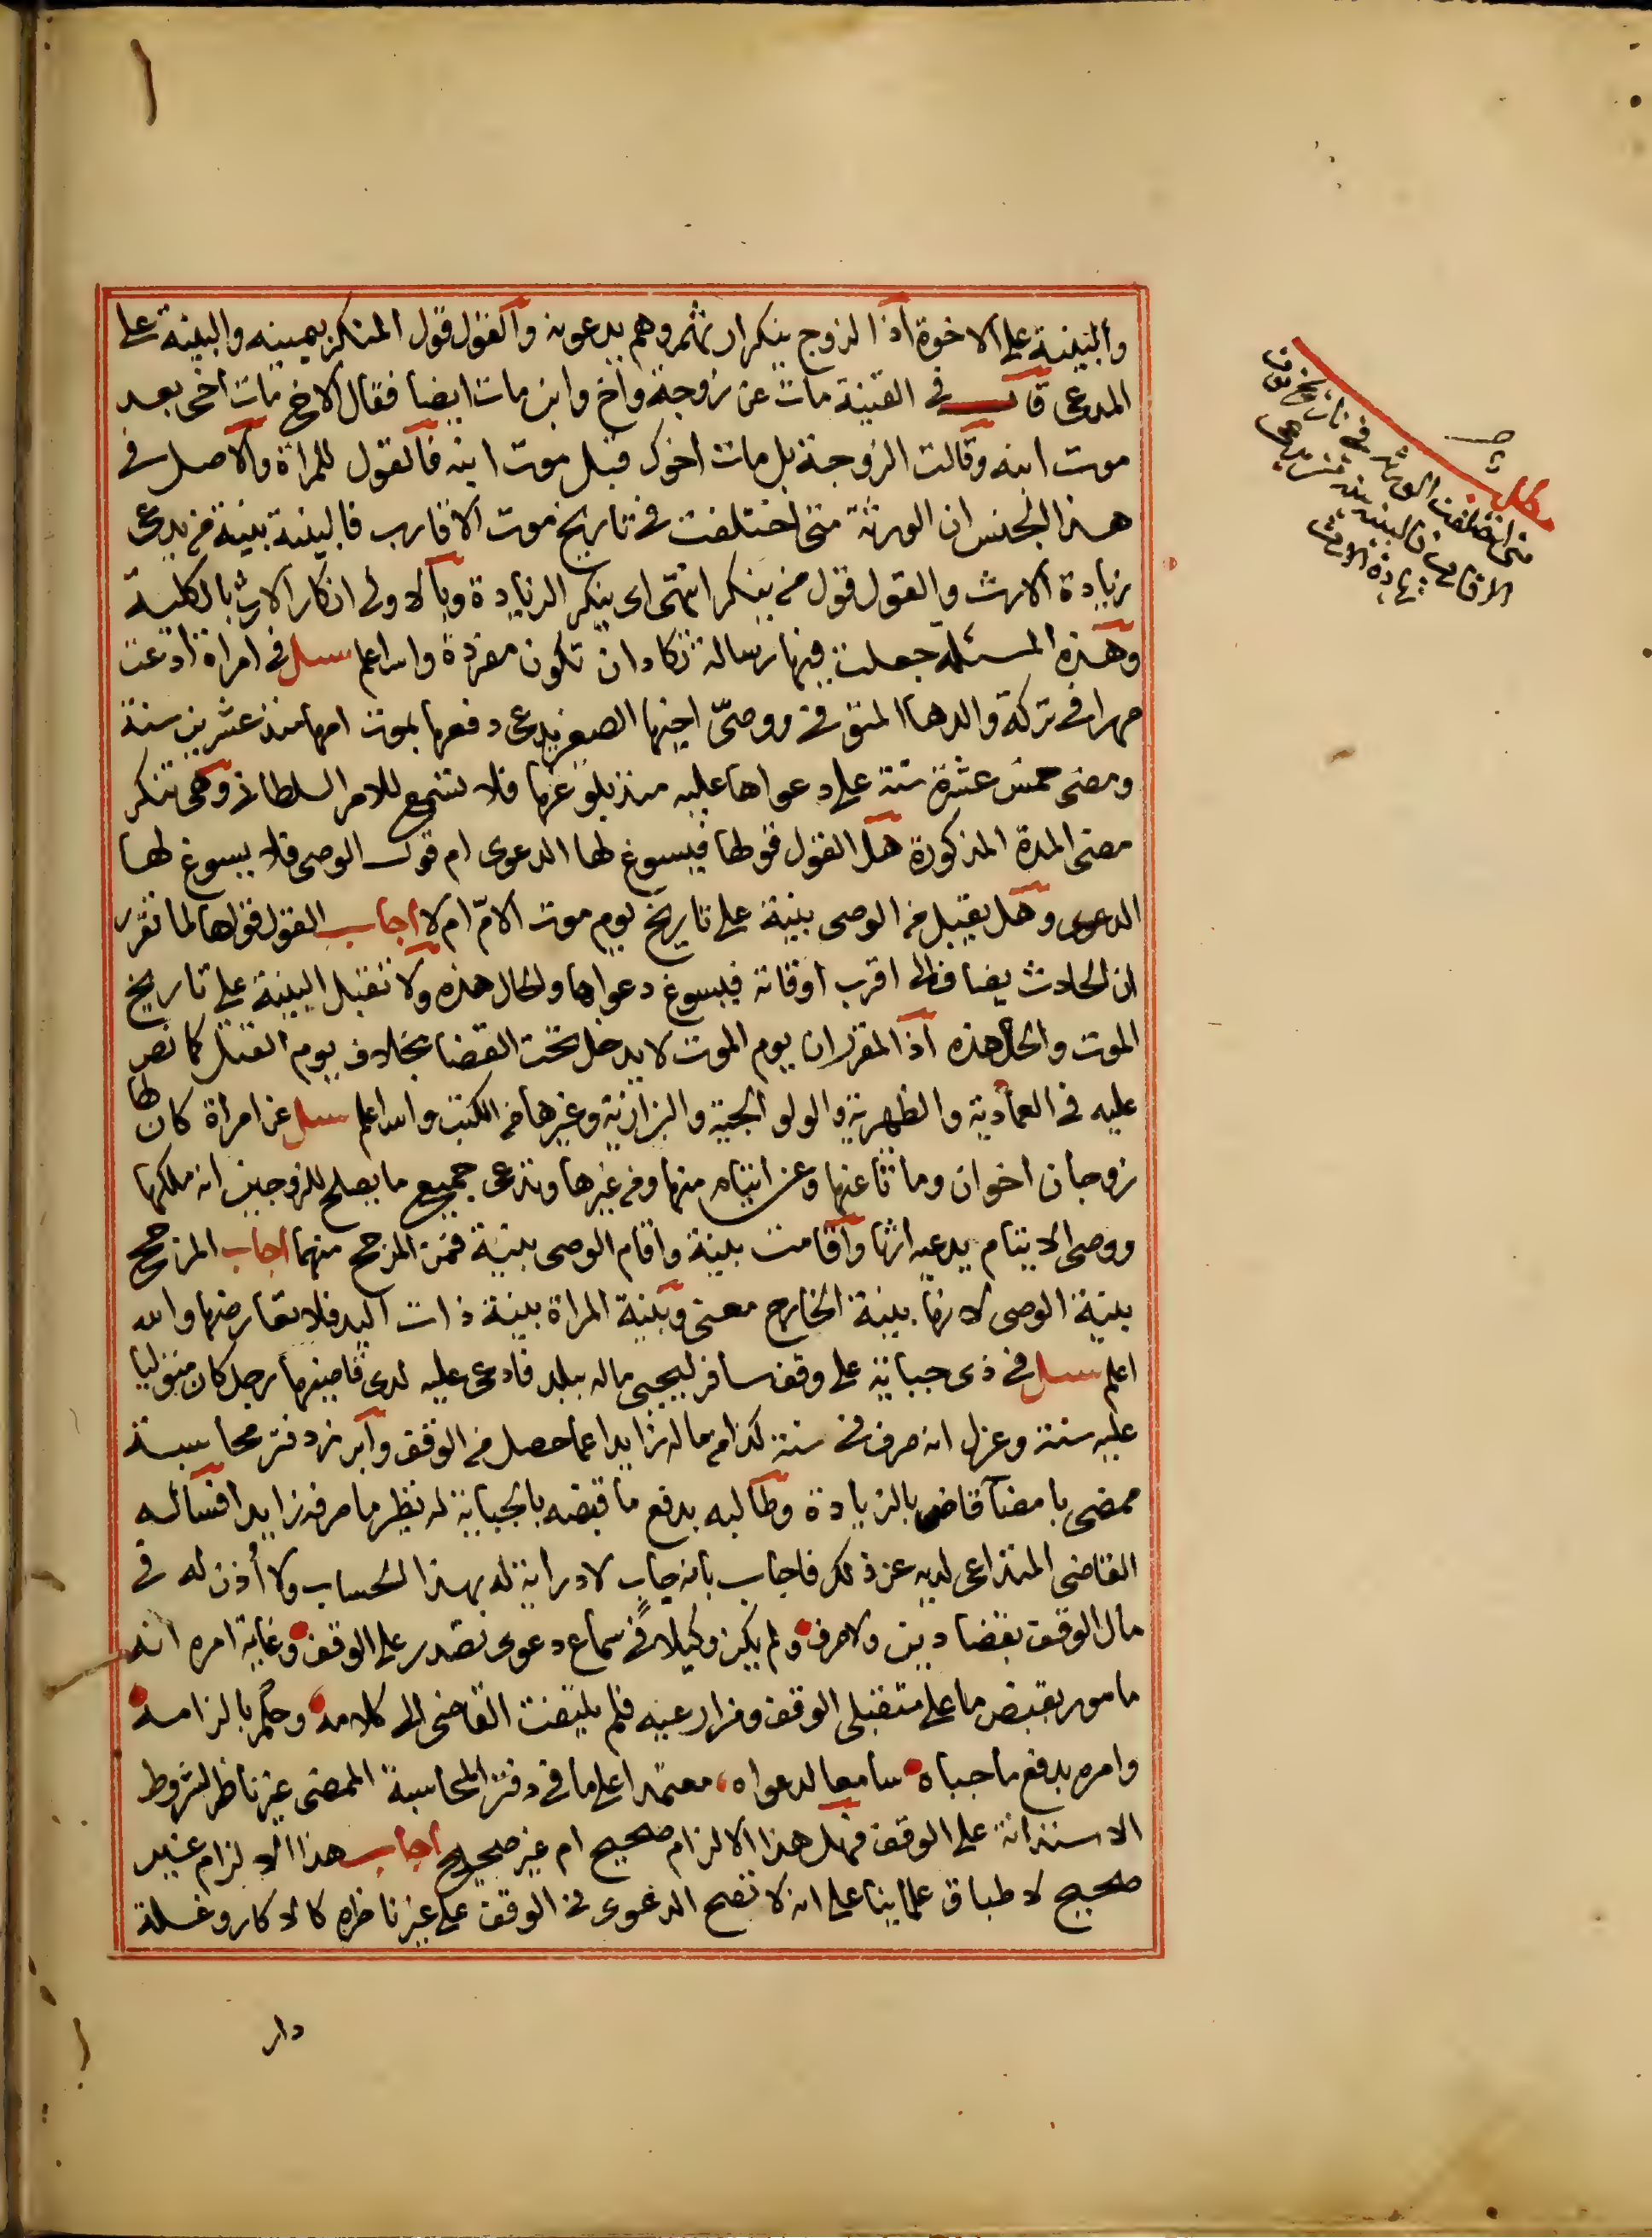 والبينة على الاخوة اذ الزوج ينكر ارثهم وهم يدعونه والقول قول المنكر بيمينه والبينة على
المدعى قال في القنية مات عن زوجة واخ وابن مات ايضا فقال الاخ مات اخى بعد
موت ابنه وقالت الزوجة بل مات اخوك قبل موت ابنه فالقول للمراة والاصل في
هذا الجنس ان الورثة متى اختلفت في تاريخ موت الاقارب فالبينة بينة من يدعى
زيادة الارث والقول قول من ينكر انتهى اى ينكر الزيادة وبالاولى انكار الارث بالكلية
وهذه المسئلة جعلت فيها رسالة تكاد ان تكون مفردة والله اعلم سئل في امراة ادعت
مهرا في تركة والدها المتوفى ووصى ابنها الصغير يدعى دفعها بموت امها منذ عشرين سنة
ومضى خمس عشرة سنة على دعواها عليه منذ بلوغها فلا تسمع للامر السلطانى وهى تنكر
مضى المدة المذكورة هل القول قولها فيسوغ لها الدعوى ام قول الوصى فلا يسوغ لها
الدعوى وهل يقبل من الوصى بينة على تاريخ يوم موت الام ام لا اجاب القول قولها لما تقرر
ان الحادث يضاف الى اقرب اوقاته فيسوغ دعواها والحال هذه ولا تقبل البينة على تاريخ
الموت والحال هذه اذ المقرر ان يوم الموت لا يدخل تحت القضا بخلاف يوم القتل كما نص
عليه في العمادية والظهيرية والولوالجية والبزازية وغيرها من الكتب والله اعلم سئل عن امراة كان لها
زوجان اخوان وماتا عنها وعن ايتام منها ومن غيرها وتدعى جميع ما يصلح للزوجين انه ملكها
ووصى الايتام يدعيه ارثا واقامت بينة واقام الوصى بينة فمن المرجح منهما اجاب المرجح
بينة الوصى لانها بينة الخارج معنى وبينة المراة بينة ذات اليد فلا تعارضها والله
اعلم سئل في ذى جباية على وقف سافر ليجبى ماله ببلد فادعى عليه لدى قاضيها رجل كان متوليا
عليه سنة وعزل انه صرف في سنة كذا من ماله زايدا عما حصل من الوقف وابرز دفتر محاسبة
ممضى بامضآ قاض بالزيادة وطالبه بدفع ما قبضه بالجباية له نظير ما صرفه زايدا فساله
القاضى المتداعى لديه عن ذلك فاجاب بانه جاب لا دراية له بهذا الحساب ولا أذن له في
مال الوقف بقضا دين ولا صرف ولم يكن وكيلا في سماع دعوى تصدر على الوقف وغاية امره انه
مامور بقبض ما على متقبلى الوقف ومزارعيه فلم يلتفت القاضى الى كلامه وحكم بالزامه
وامره بدفع ما جباه سامعا لدعواه معتمدا على ما في دفتر المحاسبة الممضى غير ناظر لشروط
الاستدانة على الوقف فهل هذا الالزام صحيح ام غير صحيح اجاب هذا الالزام غير
صحيح لاطباق علمائنا على انه لا تصح الدعوى في الوقف على غير ناظره كالاكار وغلة
دار
مطلب
متى اختلفت الورثة في تاريخ موت
الاقارب فالبينة بينة من يدعى
زيادة الارث